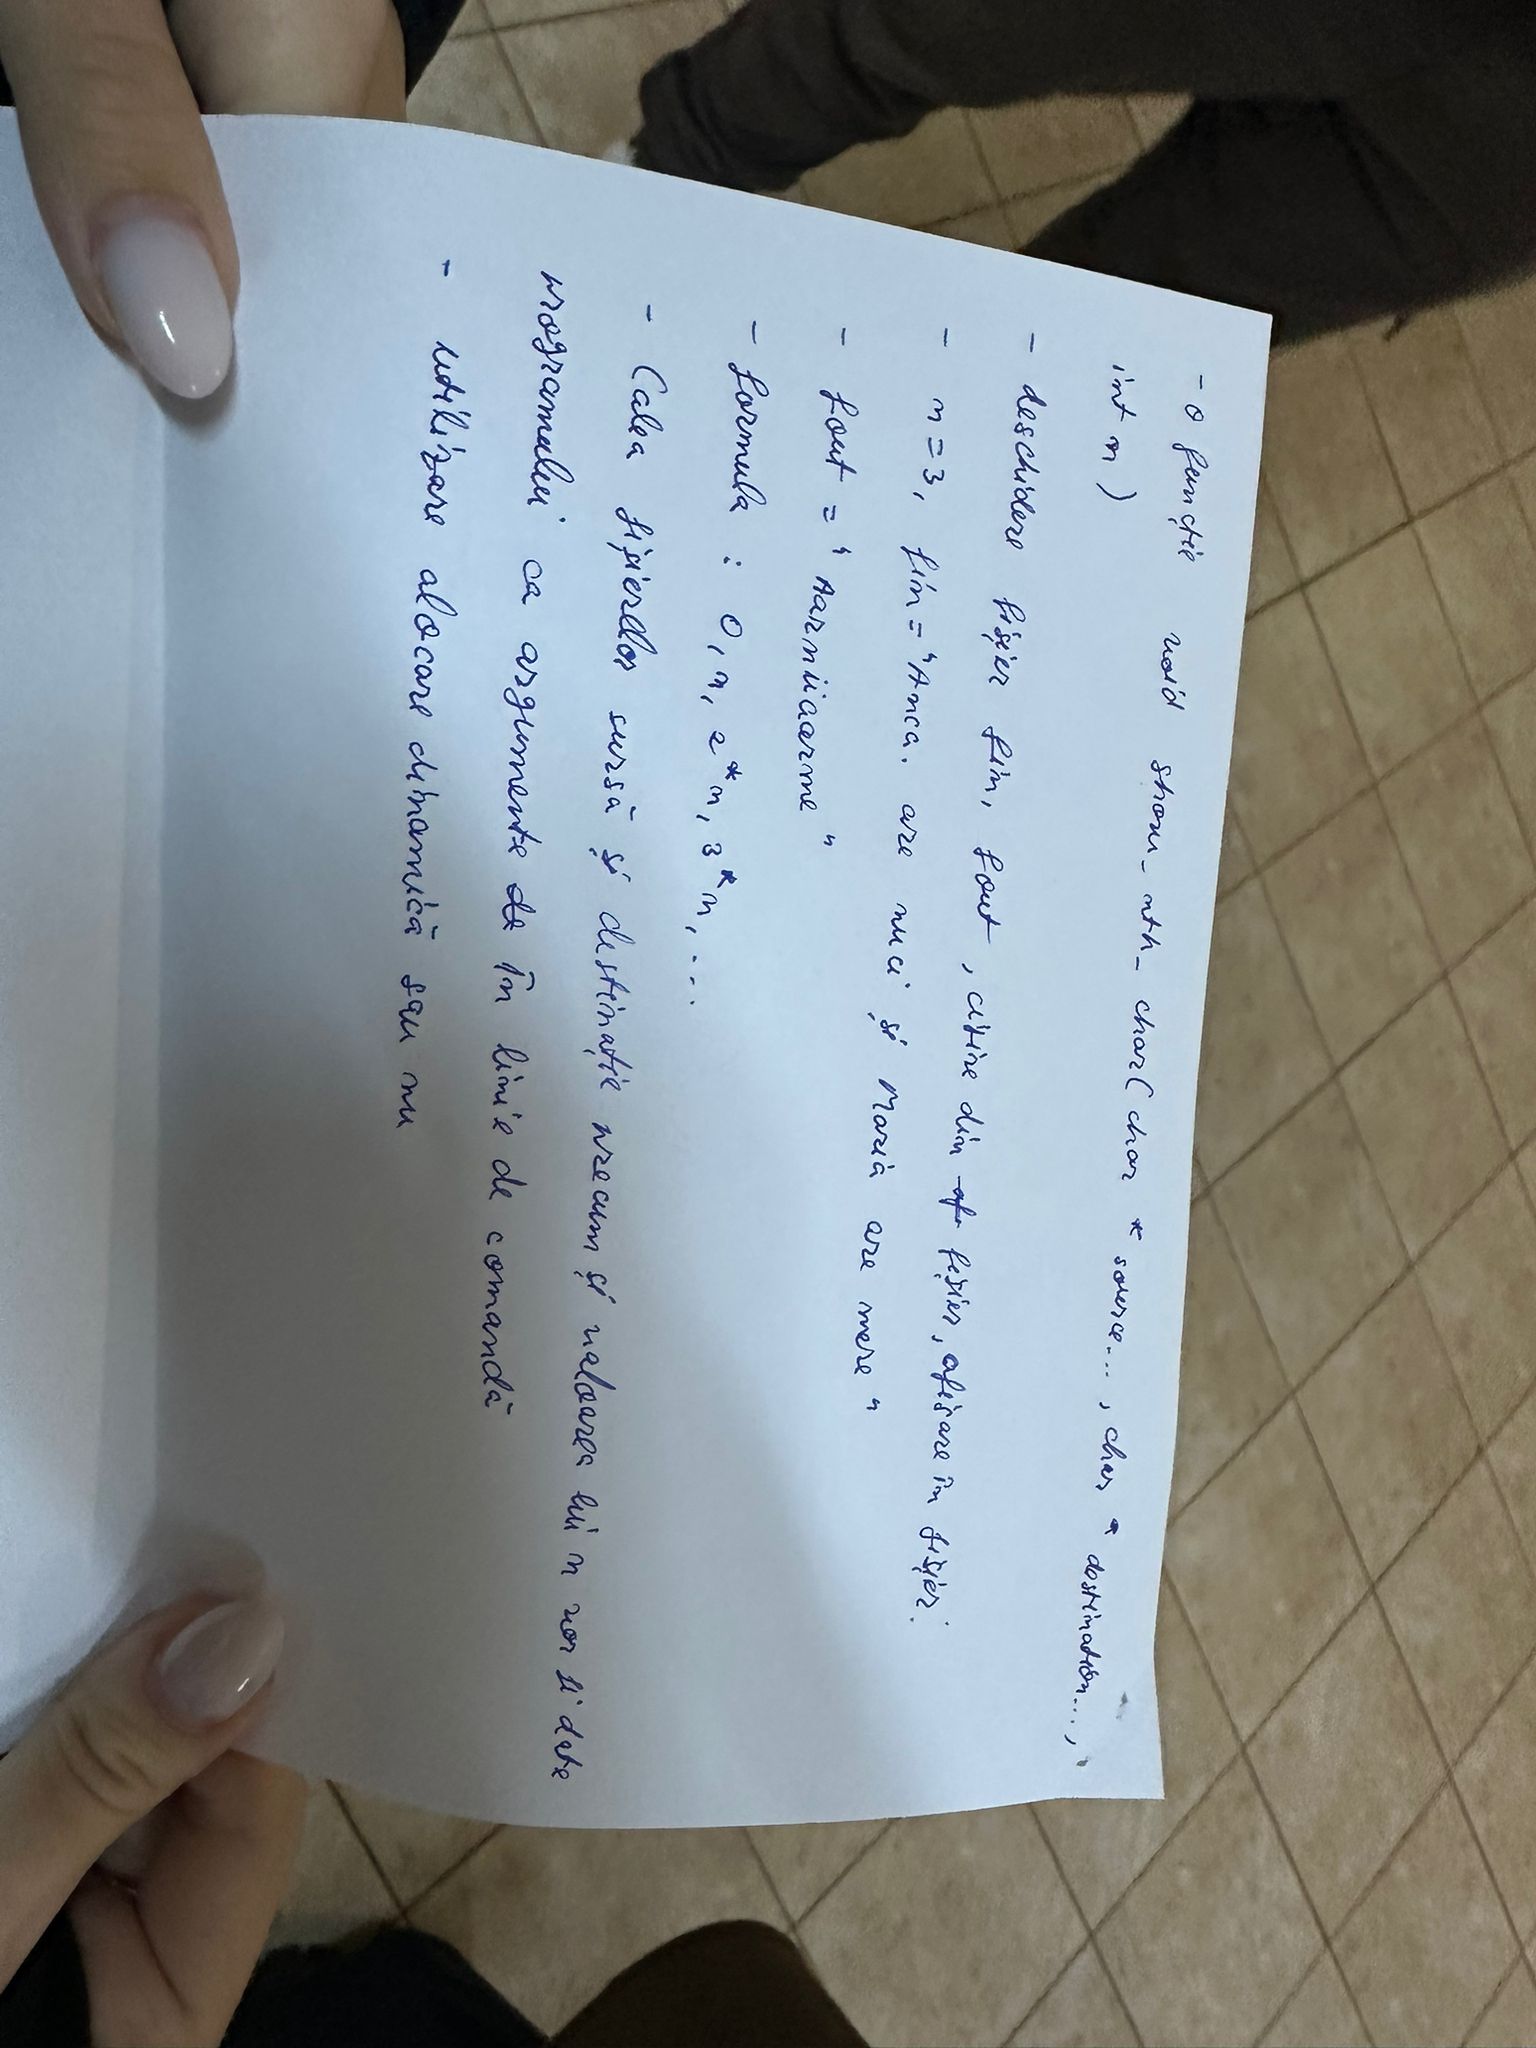 - o funcție void show_nth_char(char * source..., char * destination...,
int n)
- deschidere fișier fin, fout, citire din fișier, afișare în fișier.
- n=3, fin = "Anca. are nuci și Maria are mere"
- fout = "Aarniiaarme"
- formula : 0, n, 2*n, 3*n, ...
- Calea fișierelor sursă și destinație precum și valoarea lui n vor fi date
programului ca argumente de în linie de comandă
- utilizare alocare dinamică sau nu